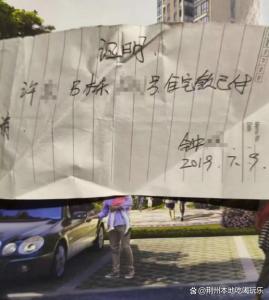 证明
许 B栋 号住宅款已付
钟
2019.7.9.
@荆州本地吃喝玩乐